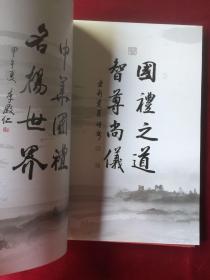 國禮之道
智尊尚儀
中華國禮
名揚世界
甲午夏 李殿仁